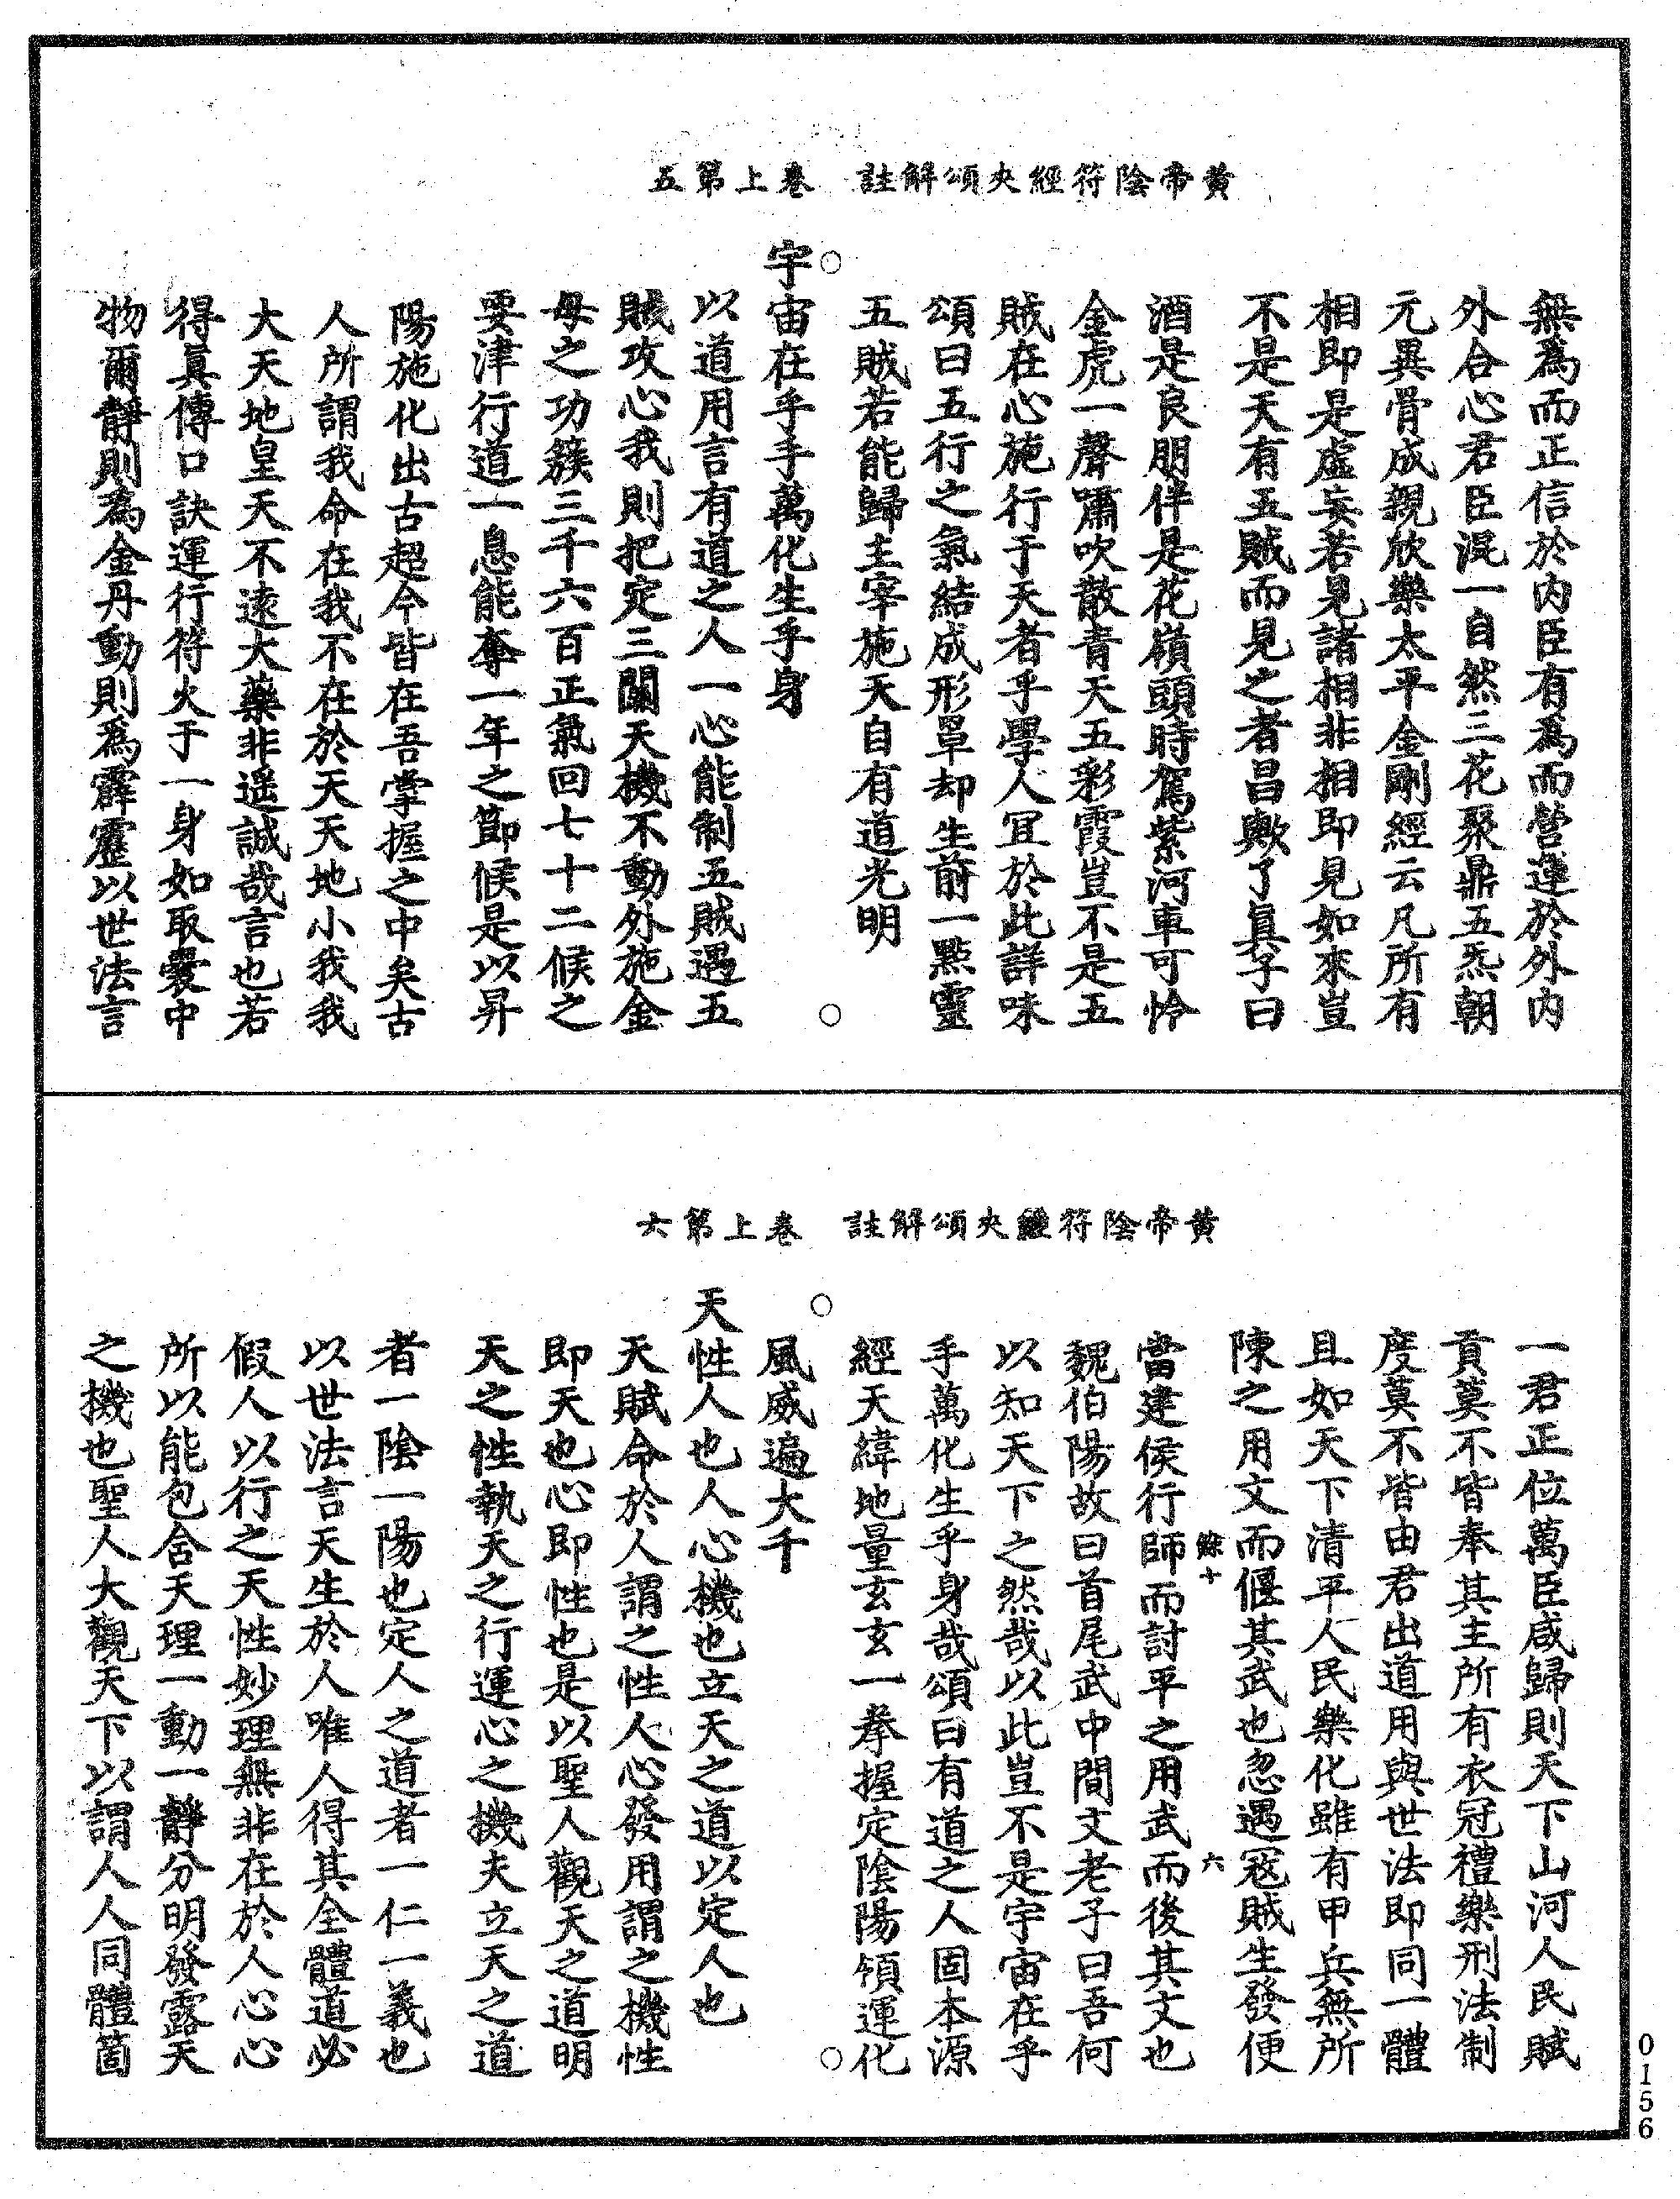 黃帝陰符經夾頌解註　卷上第五
無爲而正信於內臣有爲而營運於外內
外合心君臣混一自然三花聚鼎五炁朝
元異骨成親欣樂太平金剛經云凡所有
相即是虛妄若見諸相非相即見如來豈
不是天有五賊而見之者昌歟了眞子曰
酒是良朋伴是花嶺頭時駕紫河車可怜
金虎一聲嘯吹散青天五彩霞豈不是五
賊在心施行于天者乎學人冝於此詳味
頌曰五行之氣結成形罩却生前一點靈
五賊若能歸主宰施天自有道光明
○
宇宙在乎手萬化生乎身
○
以道用言有道之人一心能制五賊遇五
賊攻心我則把定三關天機不動外施金
母之功簇三千六百正氣回七十二候之
要津行道一息能奪一年之節候是以昇
陽施化出古超今皆在吾掌握之中矣古
人所謂我命在我不在於天天地小我我
大天地皇天不遠大藥非遥誠哉言也若
得眞傳口訣運行符火于一身如取囊中
物爾靜則爲金丹動則爲霹靂以世法言
黃帝陰符經夾頌解註　卷上第六
一君正位萬臣咸歸則天下山河人民賦
貢莫不皆奉其主所有衣冠禮樂刑法制
度莫不皆由君出道用與世法即同一體
且如天下清平人民樂化雖有甲兵無所
陳之用文而偃其武也忽遇寇賊生發便
餘十　六
當建侯行師而討平之用武而後其文也
魏伯陽故曰首尾武中間文老子曰吾何
以知天下之然哉以此豈不是宇宙在乎
手萬化生乎身哉頌曰有道之人固本源
經天緯地量玄玄一拳握定陰陽領運化
風威遍大千
○
天性人也人心機也立天之道以定人也
○
天賦命於人謂之性人心發用謂之機性
即天也心即性也是以聖人觀天之道明
天之性執天之行運心之機夫立天之道
者一陰一陽也定人之道者一仁一義也
以世法言天生於人唯人得其全體道必
假人以行之天性妙理無非在於人心心
所以能包含天理一動一靜分明發露天
之機也聖人大觀天下以謂人人同體箇
0156